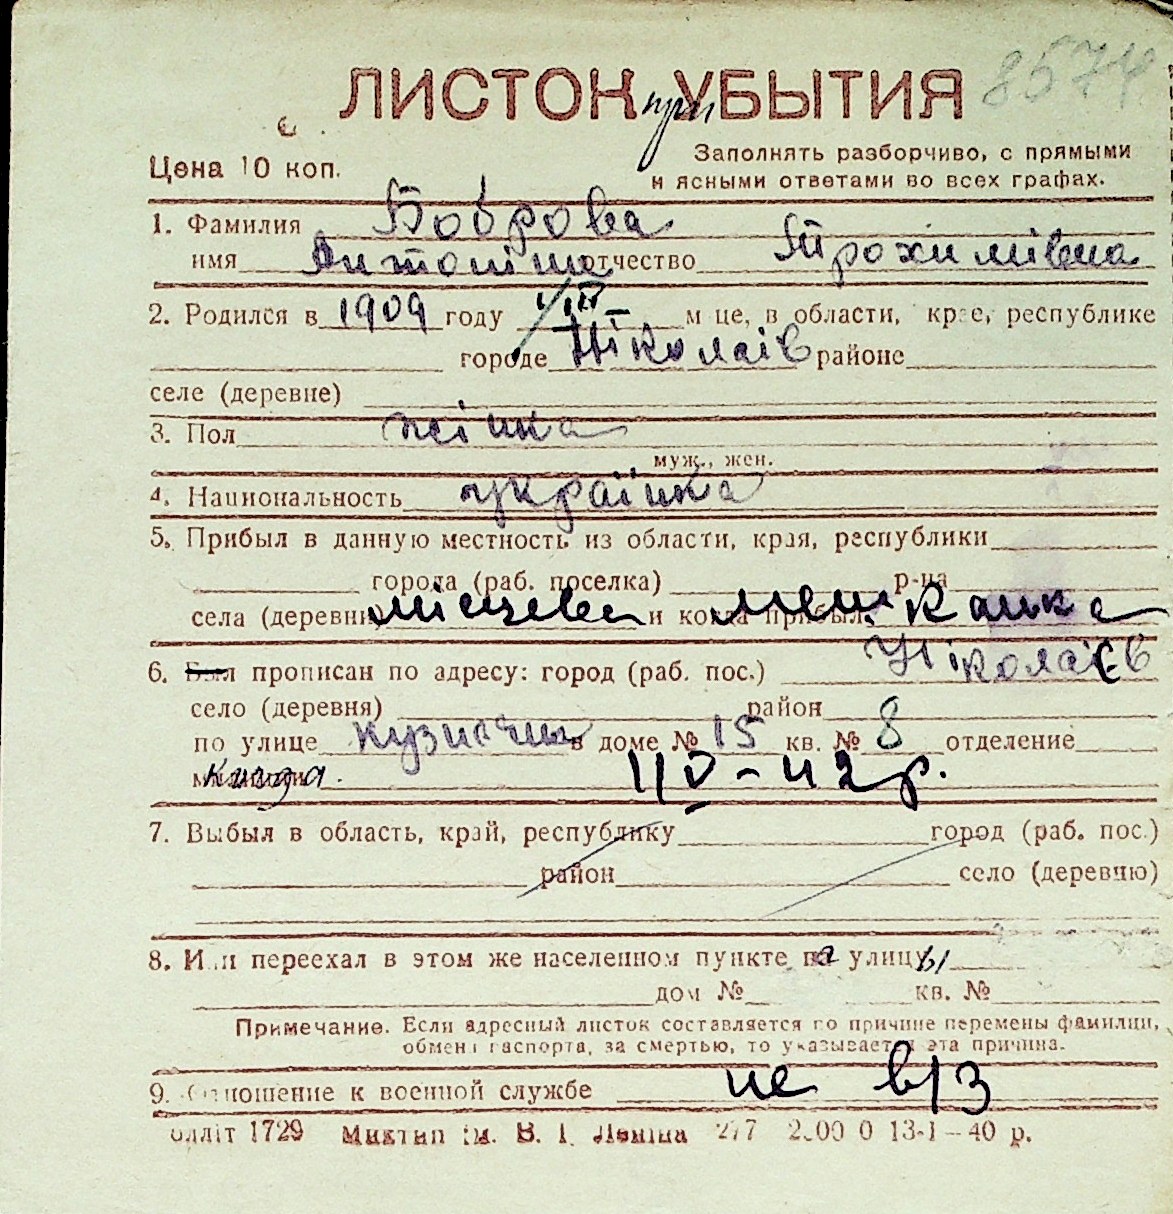 8574
ЛИСТОК при УБЫТИЯ
Цена 10 коп.
Заполнять разборчиво, с прямыми
и ясными ответами во всех графах.
1. Фамилия Боброва
имя Антоніна отчество Трохимівна
2. Родился в 1909 году 1/IV м це, в области, крае, республике
городе Ніколаів районе
селе (деревне)
3. Пол жінка
муж., жен.
4. Национальность українка
5. Прибыл в данную местность из области, края, республики
города (раб. поселка) р-на
села (деревни) місцева и когда прибыл мешканка
6. Был прописан по адресу: город (раб. пос.) Ніколаєв
село (деревня) район
по улице кузнечна в доме № 15 кв. № 8 отделение
милиции 4/V - 42 р.
7. Выбыл в область, край, республику город (раб. пос.)
район село (деревню)
8. Или переехал в этом же населенном пункте на улицу
дом № кв. №
Примечание. Если адресный листок составляется по причине перемены фамилии,
обмена паспорта, за смертью, то указывается эта причина.
9. Отношение к военной службе не в/з
блліт 1729 Миктип ім. В. І. Леніна 277 2.00 0 13-I - 40 р.